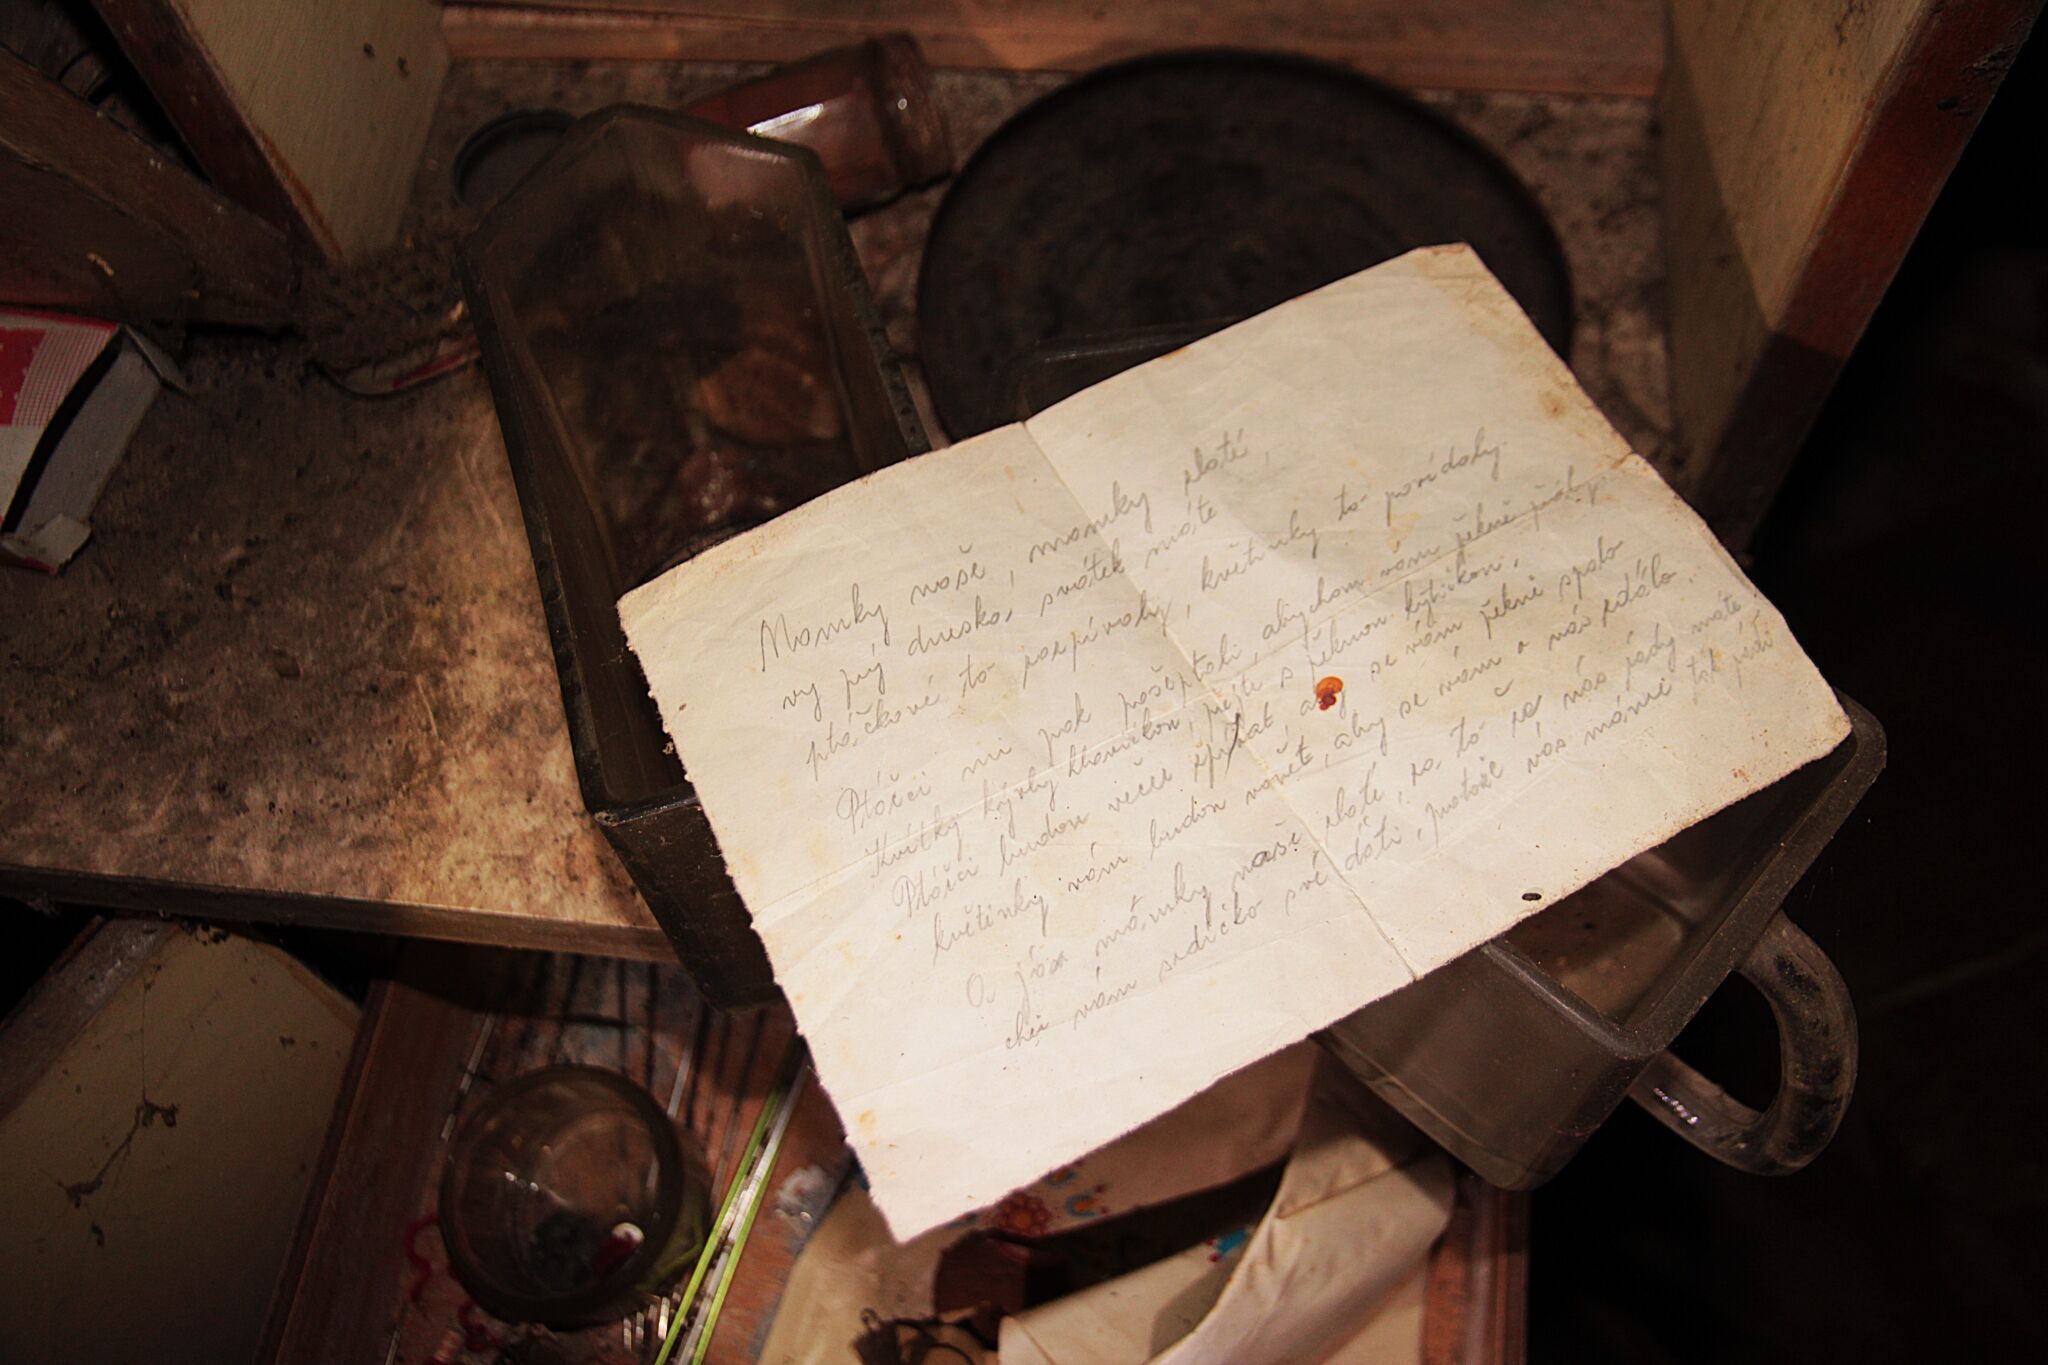 Maminky naše, maminky zlaté,
vy prý dneska svátek máte
ptáčkové to zazpívaly, květinky to povídaly.
Ptáčci mi pak pošeptali, abychom vám pěkně přáli,
Kvítky kývly hlavičkou, přejte s pěknou kytičkou.
Ptáčci budou večer zpívat, aby se vám pěkně spalo
květinky vám budou vonět, aby se vám o nás zdálo.
A já maminky naše zlaté, za to že nás rády máte,
chci vám srdíčko své dáti, protože vás máme tak rádi